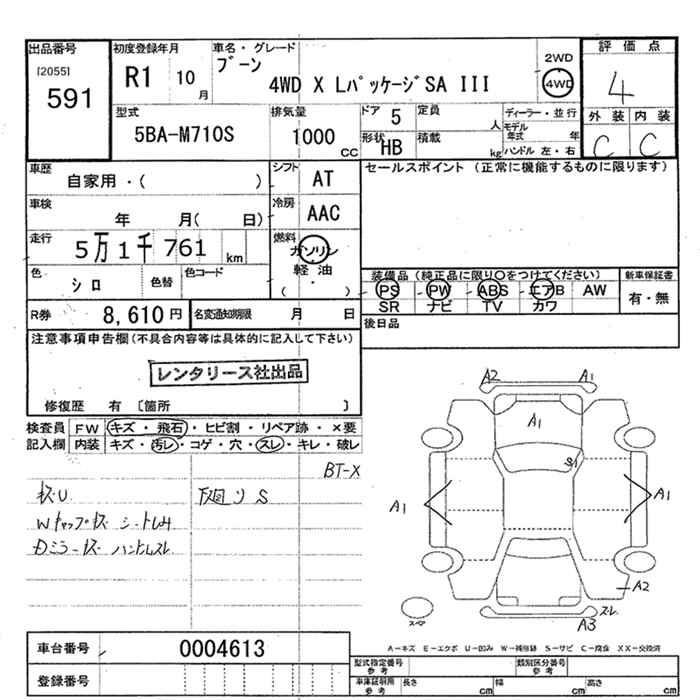 出品番号
[2055]
591
初度登録年月
R1 10月
車名・グレード
ブーン
4WD X LパッケージSA III
2WD
4WD
評価点
4
型式
5BA-M710S
排気量
1000 CC
ドア 5
定員 人
形状 HB
積載 kg
ディーラー・並行
モデル年式 年
ハンドル 左・右
外装 内装
C C
車歴
自家用・( )
シフト AT
車検
年 月( 日)
冷房 AAC
走行
5万1千761 km
燃料
ガソリン
軽油
( ・ )
色
シロ
色替
色コード
セールスポイント (正常に機能するものに限ります)
装備品 (純正品に限り○をつけてください)
新車保証書
PS PW ABS エアB AW
有・無
SR ナビ TV カワ
R券 8,610円
名変通知期限 月 日
後日品
注意事項申告欄(不具合内容等は具体的に記入して下さい)
レンタリース社出品
修復歴 有 〔箇所 〕
検査員記入欄
FW キズ・飛石・ヒビ割・リペア跡・×要
内装 キズ・汚レ・コゲ・穴・スレ・キレ・破レ
BT-X
キズU
下廻りS
Wキャップキズ シートしみ
Dミラーキズ ハンドルスレ
A2 A1
A1
S1
A1 A1
A2
スレ
A3
スペア
A-キズ E-エクボ U-凹み W-補修跡 S-サビ C-腐食 XX-交換済
車台番号 0004613
登録番号
型式指定番号 参考
類別区分番号 参考
車庫証明用 参考
長さ cm 幅 cm 高さ cm